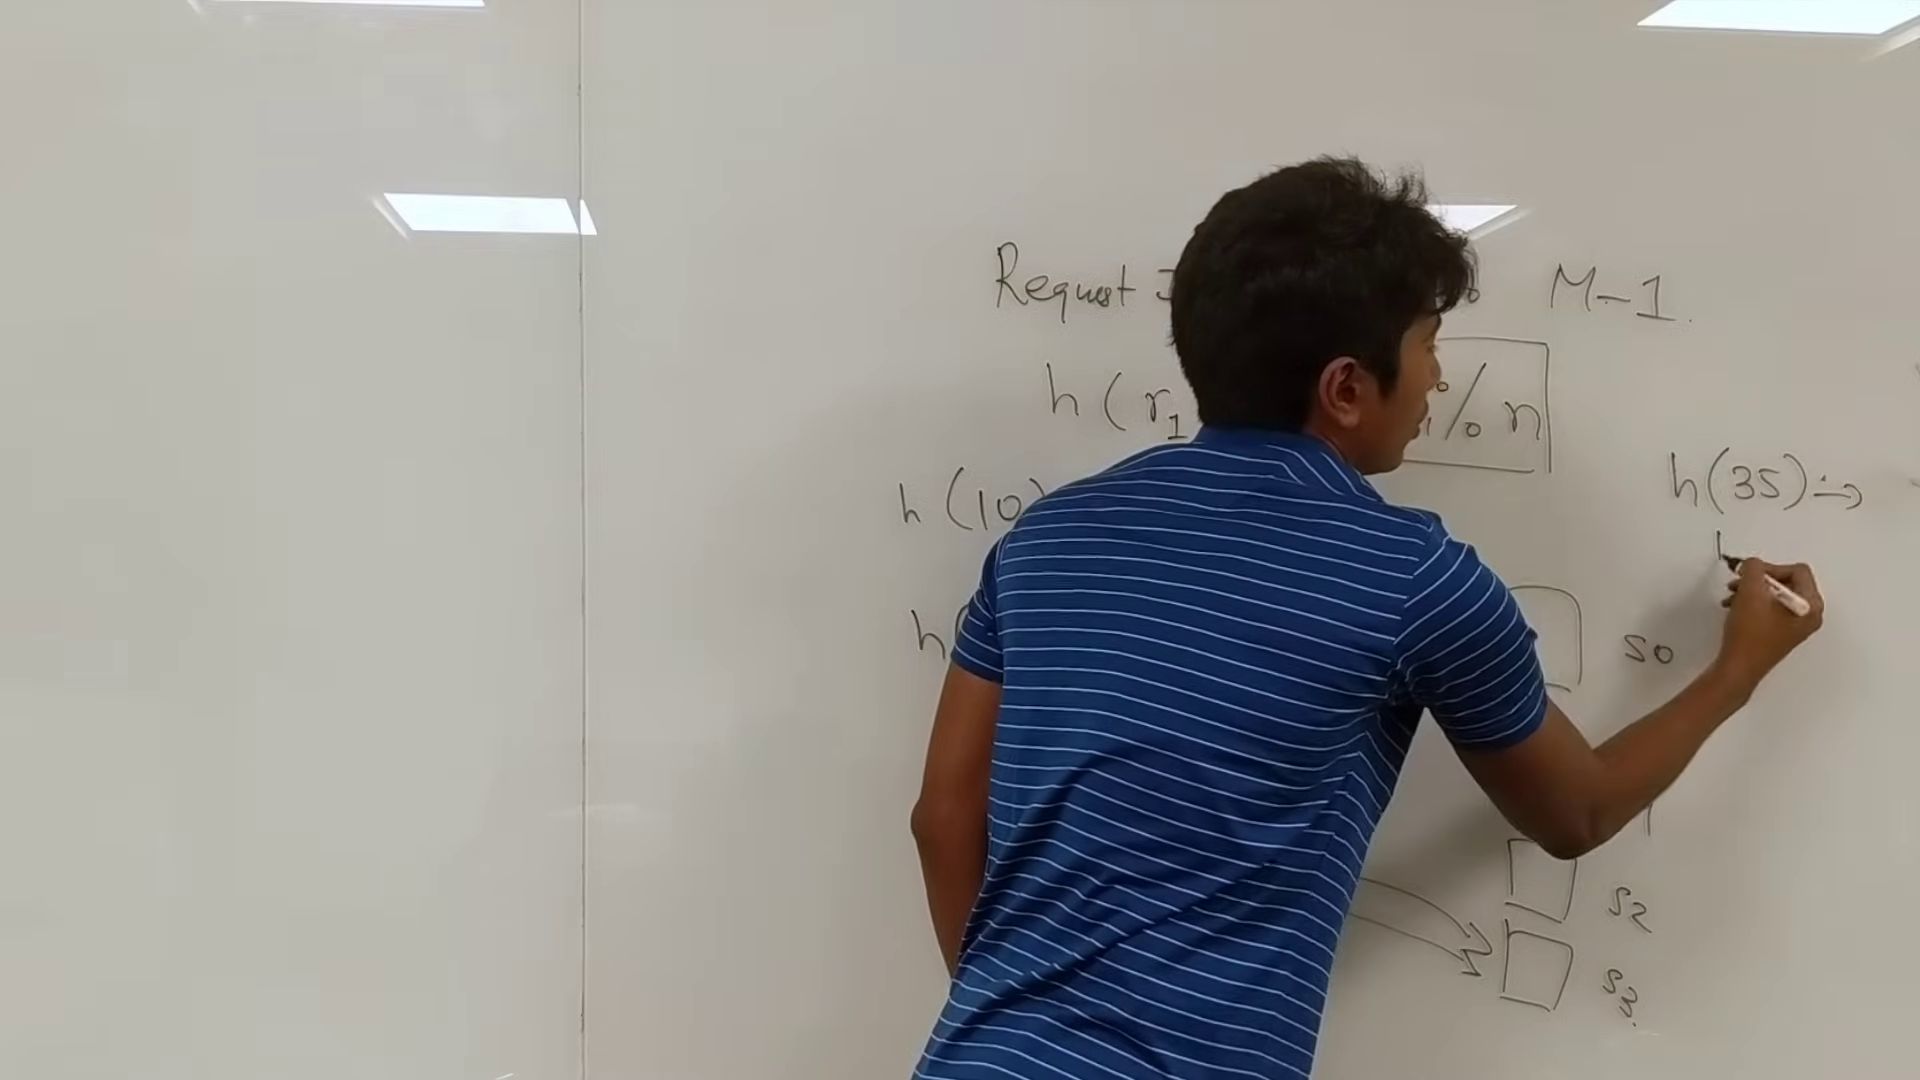 Request
M-1.
h(r1
% n
h(10)
h(35) →
h
s0
s2
s3